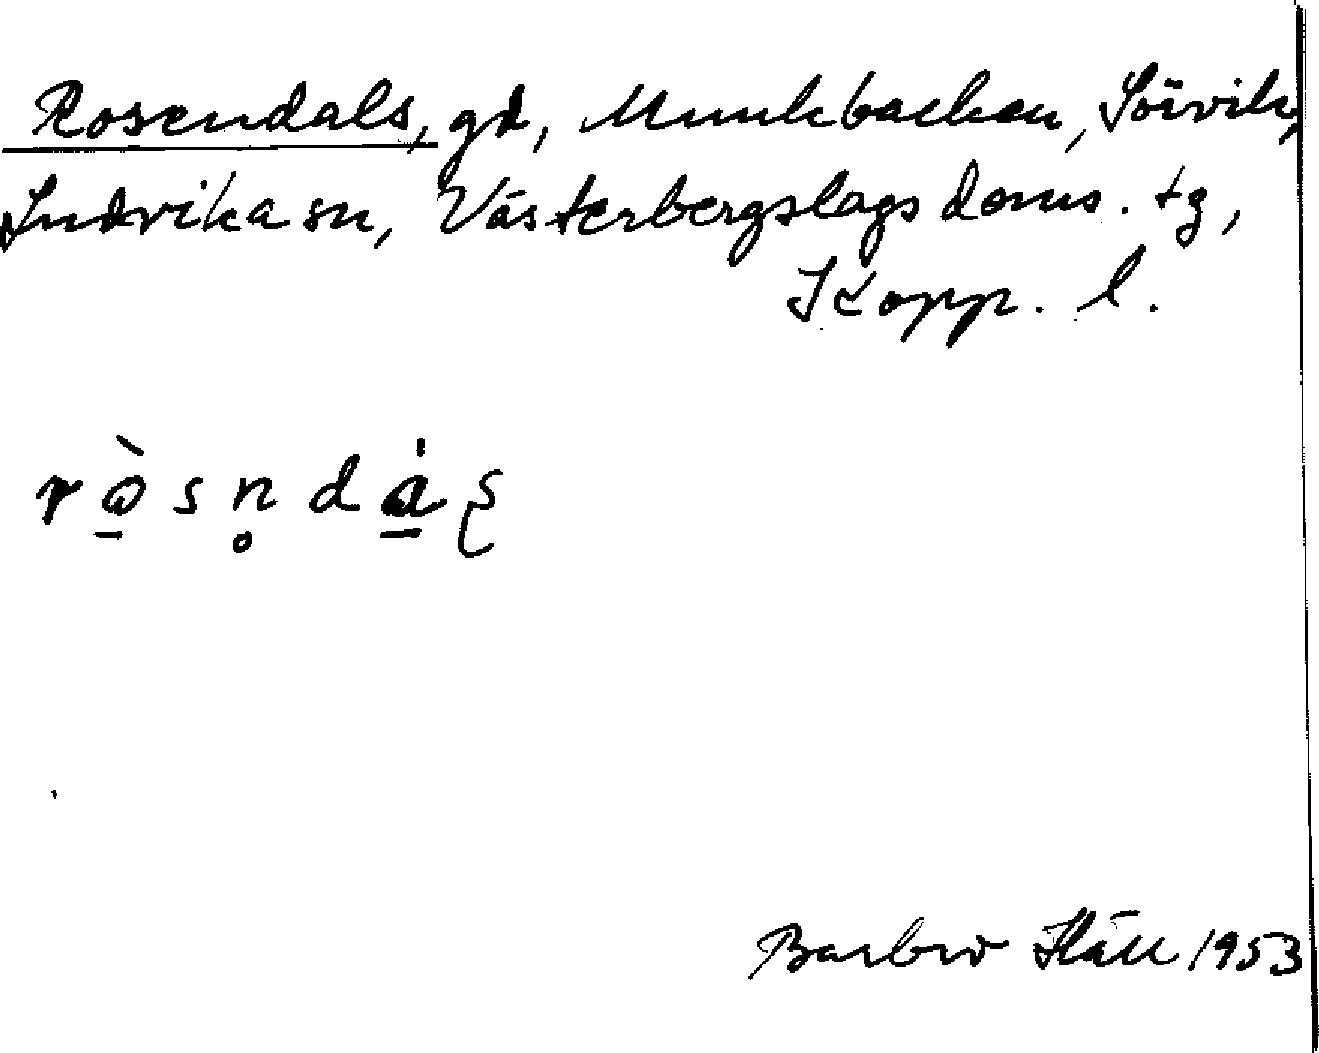 Rosendals, gd, Munkbacken, Sörvik,
Ludvika sn, Västerbergslags doms. tg,
Kopp. l.
rò̱sn̥dá̱ʂ
Barbro Häll 1953